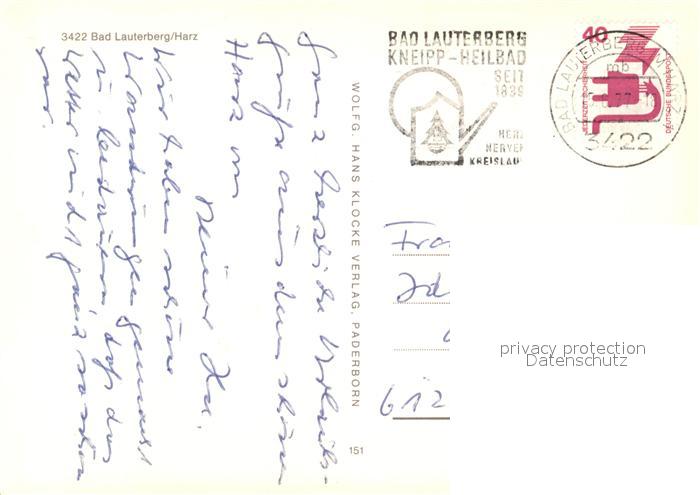 3422 Bad Lauterberg/Harz
Ganz herzliche Urlaubs-
grüße aus dem schönen
Harz von
Deiner
Wir haben schöne
Wanderungen gemacht
zu bedauern, daß das
Wetter nicht ganz so schön
war.
WOLFG. HANS KLOCKE VERLAG, PADERBORN
151
BAD LAUTERBERG
KNEIPP-HEILBAD
SEIT
1839
HERZ
NERVEN
KREISLAUF
40
JEDERZEIT SICHERHEIT
DEUTSCHE BUNDESPOST
BAD LAUTERBERG IM HARZ
mb
3422
Fra
612
privacy protection
Datenschutz